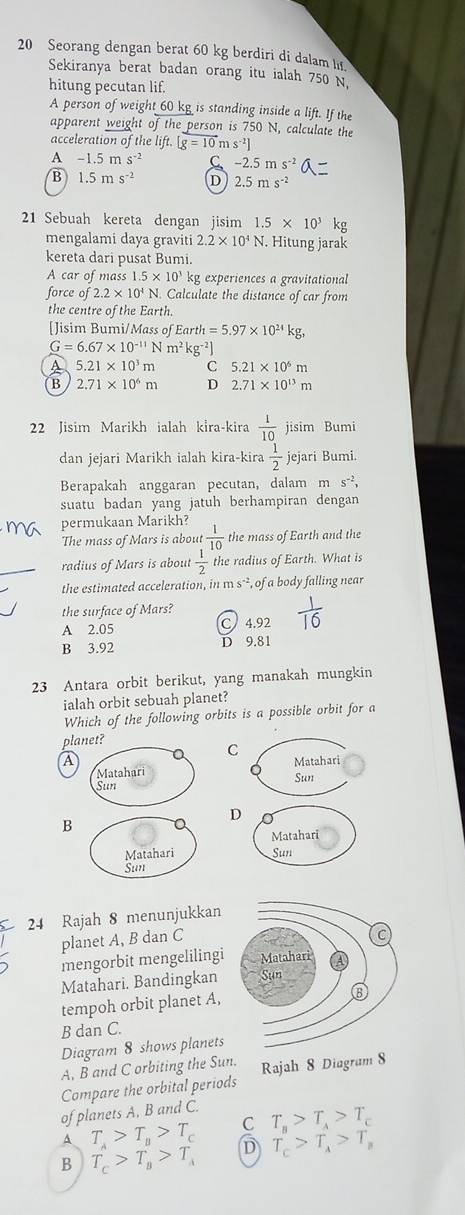 20 Seorang dengan berat 60 kg berdiri di dalam lif.
Sekiranya berat badan orang itu ialah 750 N,
hitung pecutan lif.
A person of weight 60 kg is standing inside a lift. If the
apparent weight of the person is 750 N, calculate the
acceleration of the lift. [g = 10 m s⁻²]
A -1.5 m s⁻² C -2.5 m s⁻² a=
B 1.5 m s⁻² D 2.5 m s⁻²
21 Sebuah kereta dengan jisim 1.5 × 10³ kg
mengalami daya graviti 2.2 × 10⁴ N. Hitung jarak
kereta dari pusat Bumi.
A car of mass 1.5 × 10³ kg experiences a gravitational
force of 2.2 × 10⁴ N. Calculate the distance of car from
the centre of the Earth.
[Jisim Bumi/Mass of Earth = 5.97 × 10²⁴ kg,
G = 6.67 × 10⁻¹¹ N m² kg⁻²]
A 5.21 × 10³ m C 5.21 × 10⁶ m
B 2.71 × 10⁶ m D 2.71 × 10¹³ m
22 Jisim Marikh ialah kira-kira 1/10 jisim Bumi
dan jejari Marikh ialah kira-kira 1/2 jejari Bumi.
Berapakah anggaran pecutan, dalam m s⁻²,
suatu badan yang jatuh berhampiran dengan
permukaan Marikh?
ma
The mass of Mars is about 1/10 the mass of Earth and the
radius of Mars is about 1/2 the radius of Earth. What is
the estimated acceleration, in m s⁻², of a body falling near
the surface of Mars?
A 2.05 C 4.92 1/10
B 3.92 D 9.81
23 Antara orbit berikut, yang manakah mungkin
ialah orbit sebuah planet?
Which of the following orbits is a possible orbit for a
planet?
A Matahari
Sun
C Matahari
Sun
B Matahari
Sun
D Matahari
Sun
24 Rajah 8 menunjukkan
planet A, B dan C
mengorbit mengelilingi
Matahari. Bandingkan
tempoh orbit planet A,
B dan C.
Diagram 8 shows planets
A, B and C orbiting the Sun.
Compare the orbital periods
of planets A, B and C.
Matahari
Sun
A
B
C
Rajah 8 Diagram 8
A T_A > T_B > T_C C T_B > T_A > T_C
B T_C > T_B > T_A D T_C > T_A > T_B